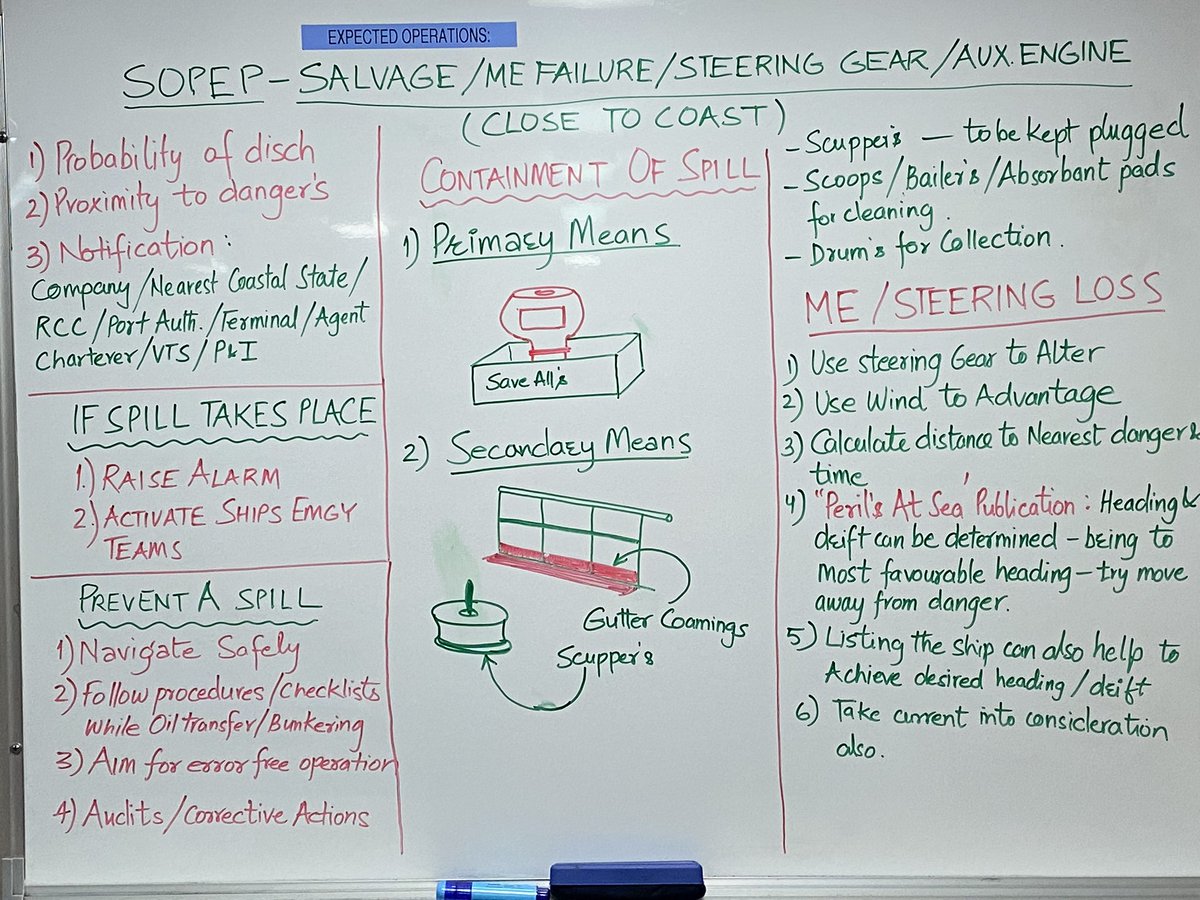 EXPECTED OPERATIONS:
SOPEP - SALVAGE/ME FAILURE/STEERING GEAR/AUX.ENGINE
(CLOSE TO COAST)
1) Probability of disch
2) Proximity to danger's
3) Notification:
Company/Nearest Coastal State/
RCC/Port Auth./Terminal/Agent
Charterer/VTS/P&I
IF SPILL TAKES PLACE
1.) RAISE ALARM
2.) ACTIVATE SHIPS EMGY
TEAMS
PREVENT A SPILL
1) Navigate Safely
2) Follow procedures/Checklists
While Oil transfer/Bunkering
3) Aim for error free operation
4) Audits/Corrective Actions
CONTAINMENT OF SPILL
1) Primary Means
Save All's
2) Secondary Means
Gutter Coamings
Scupper's
- Scupper's - to be kept plugged
- Scoops/Bailer's/Absorbant pads
for cleaning.
- Drum's for Collection.
ME/STEERING LOSS
1) Use steering Gear to Alter
2) Use Wind to Advantage
3) Calculate distance to Nearest danger &
time
4) "Peril's At Sea' Publication: Heading &
drift can be determined - being to
Most favourable heading - try move
away from danger.
5) Listing the ship can also help to
Achieve desired heading/drift
6) Take current into consideration
also.